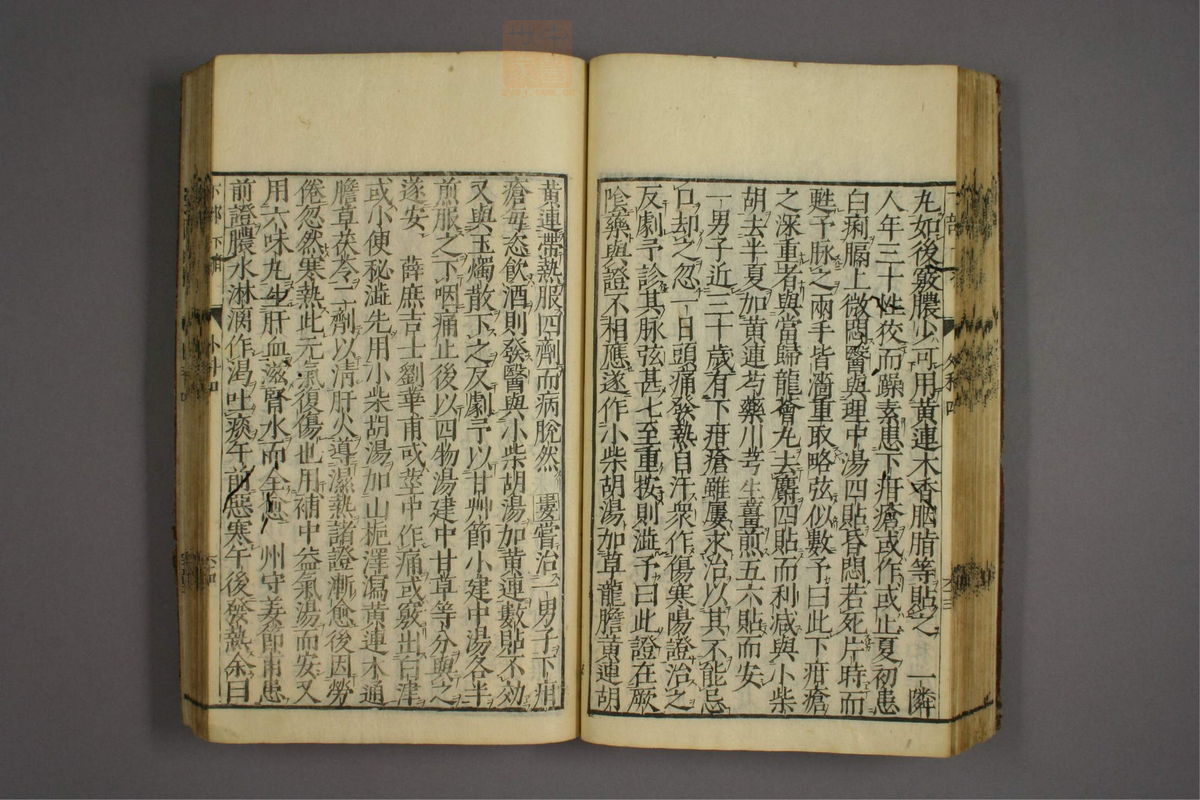 丸如後竅膿少可用黄連木香胭脂等貼之　一隣
人年三十性狡而躁素患下疳瘡或作或止夏初患
白痢膈上微悶醫與理中湯四貼昏悶若死片時而
甦予脉之兩手皆濇重取略弦似數予曰此下疳瘡
之深重者與當歸龍薈丸去麝四貼而利減與小柴
胡去半夏加黄連芍藥川芎生薑煎五六貼而安
一男子近三十歳有下疳瘡雖屢求治以其不能忌
口却之忽一日頭痛發熱自汗衆作傷寒陽證治之
反劇予診其脉弦甚七至重按則澁予曰此證在厥
陰藥與證不相應遂作小柴胡湯加草龍膽黄連胡
黄連帶熱服四劑而病脫然　婁嘗治一男子下疳
瘡毎恣飲酒則發醫與小柴胡湯加黄連數貼不効
又與玉燭散下之反劇予以甘艸節小建中湯各半
煎服之下咽痛止後以四物湯建中甘草等分與之
遂安　薛庶吉士劉華甫或莖中作痛或竅出白津
或小便秘澁先用小柴胡湯加山梔澤瀉黄連木通
膽草茯苓二劑以清肝火導濕熱諸證漸愈後因勞
倦忽然寒熱此元氣復傷也用補中益氣湯而安又
用六味丸生肝血滋腎水而全愈　州守姜節甫患
前證膿水淋漓作渴吐痰午前惡寒午後發熱余曰